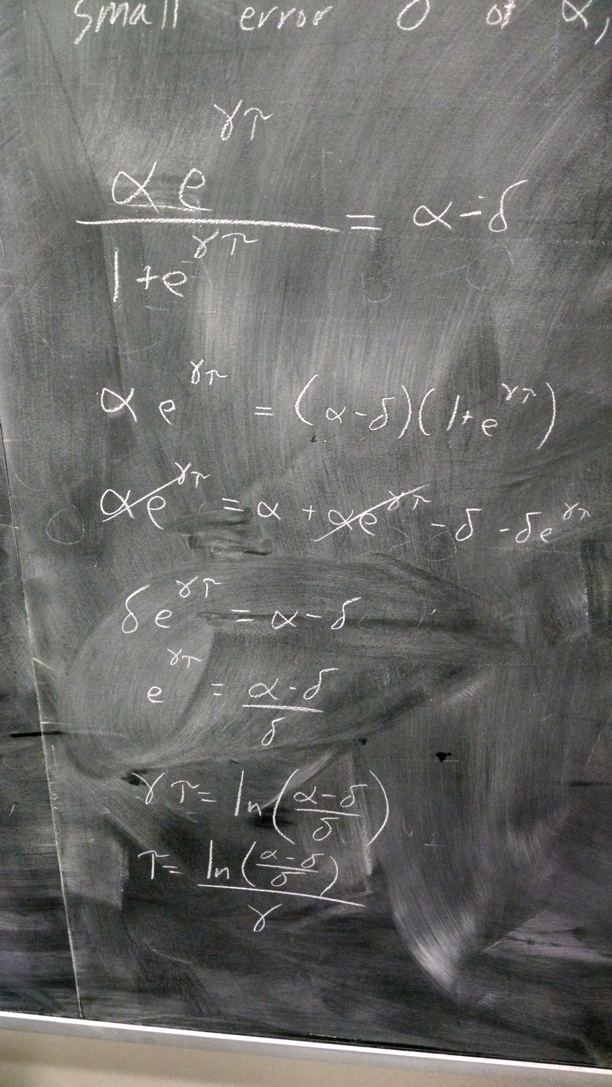 small error δ of α,
αe^(γτ) / (1+e^(γτ)) = α-δ
αe^(γτ) = (α-δ)(1+e^(γτ))
αe^(γτ) = α + αe^(γτ) - δ - δe^(γτ)
δe^(γτ) = α-δ
e^(γτ) = (α-δ)/δ
γτ = ln((α-δ)/δ)
τ = ln((α-δ)/δ) / γ